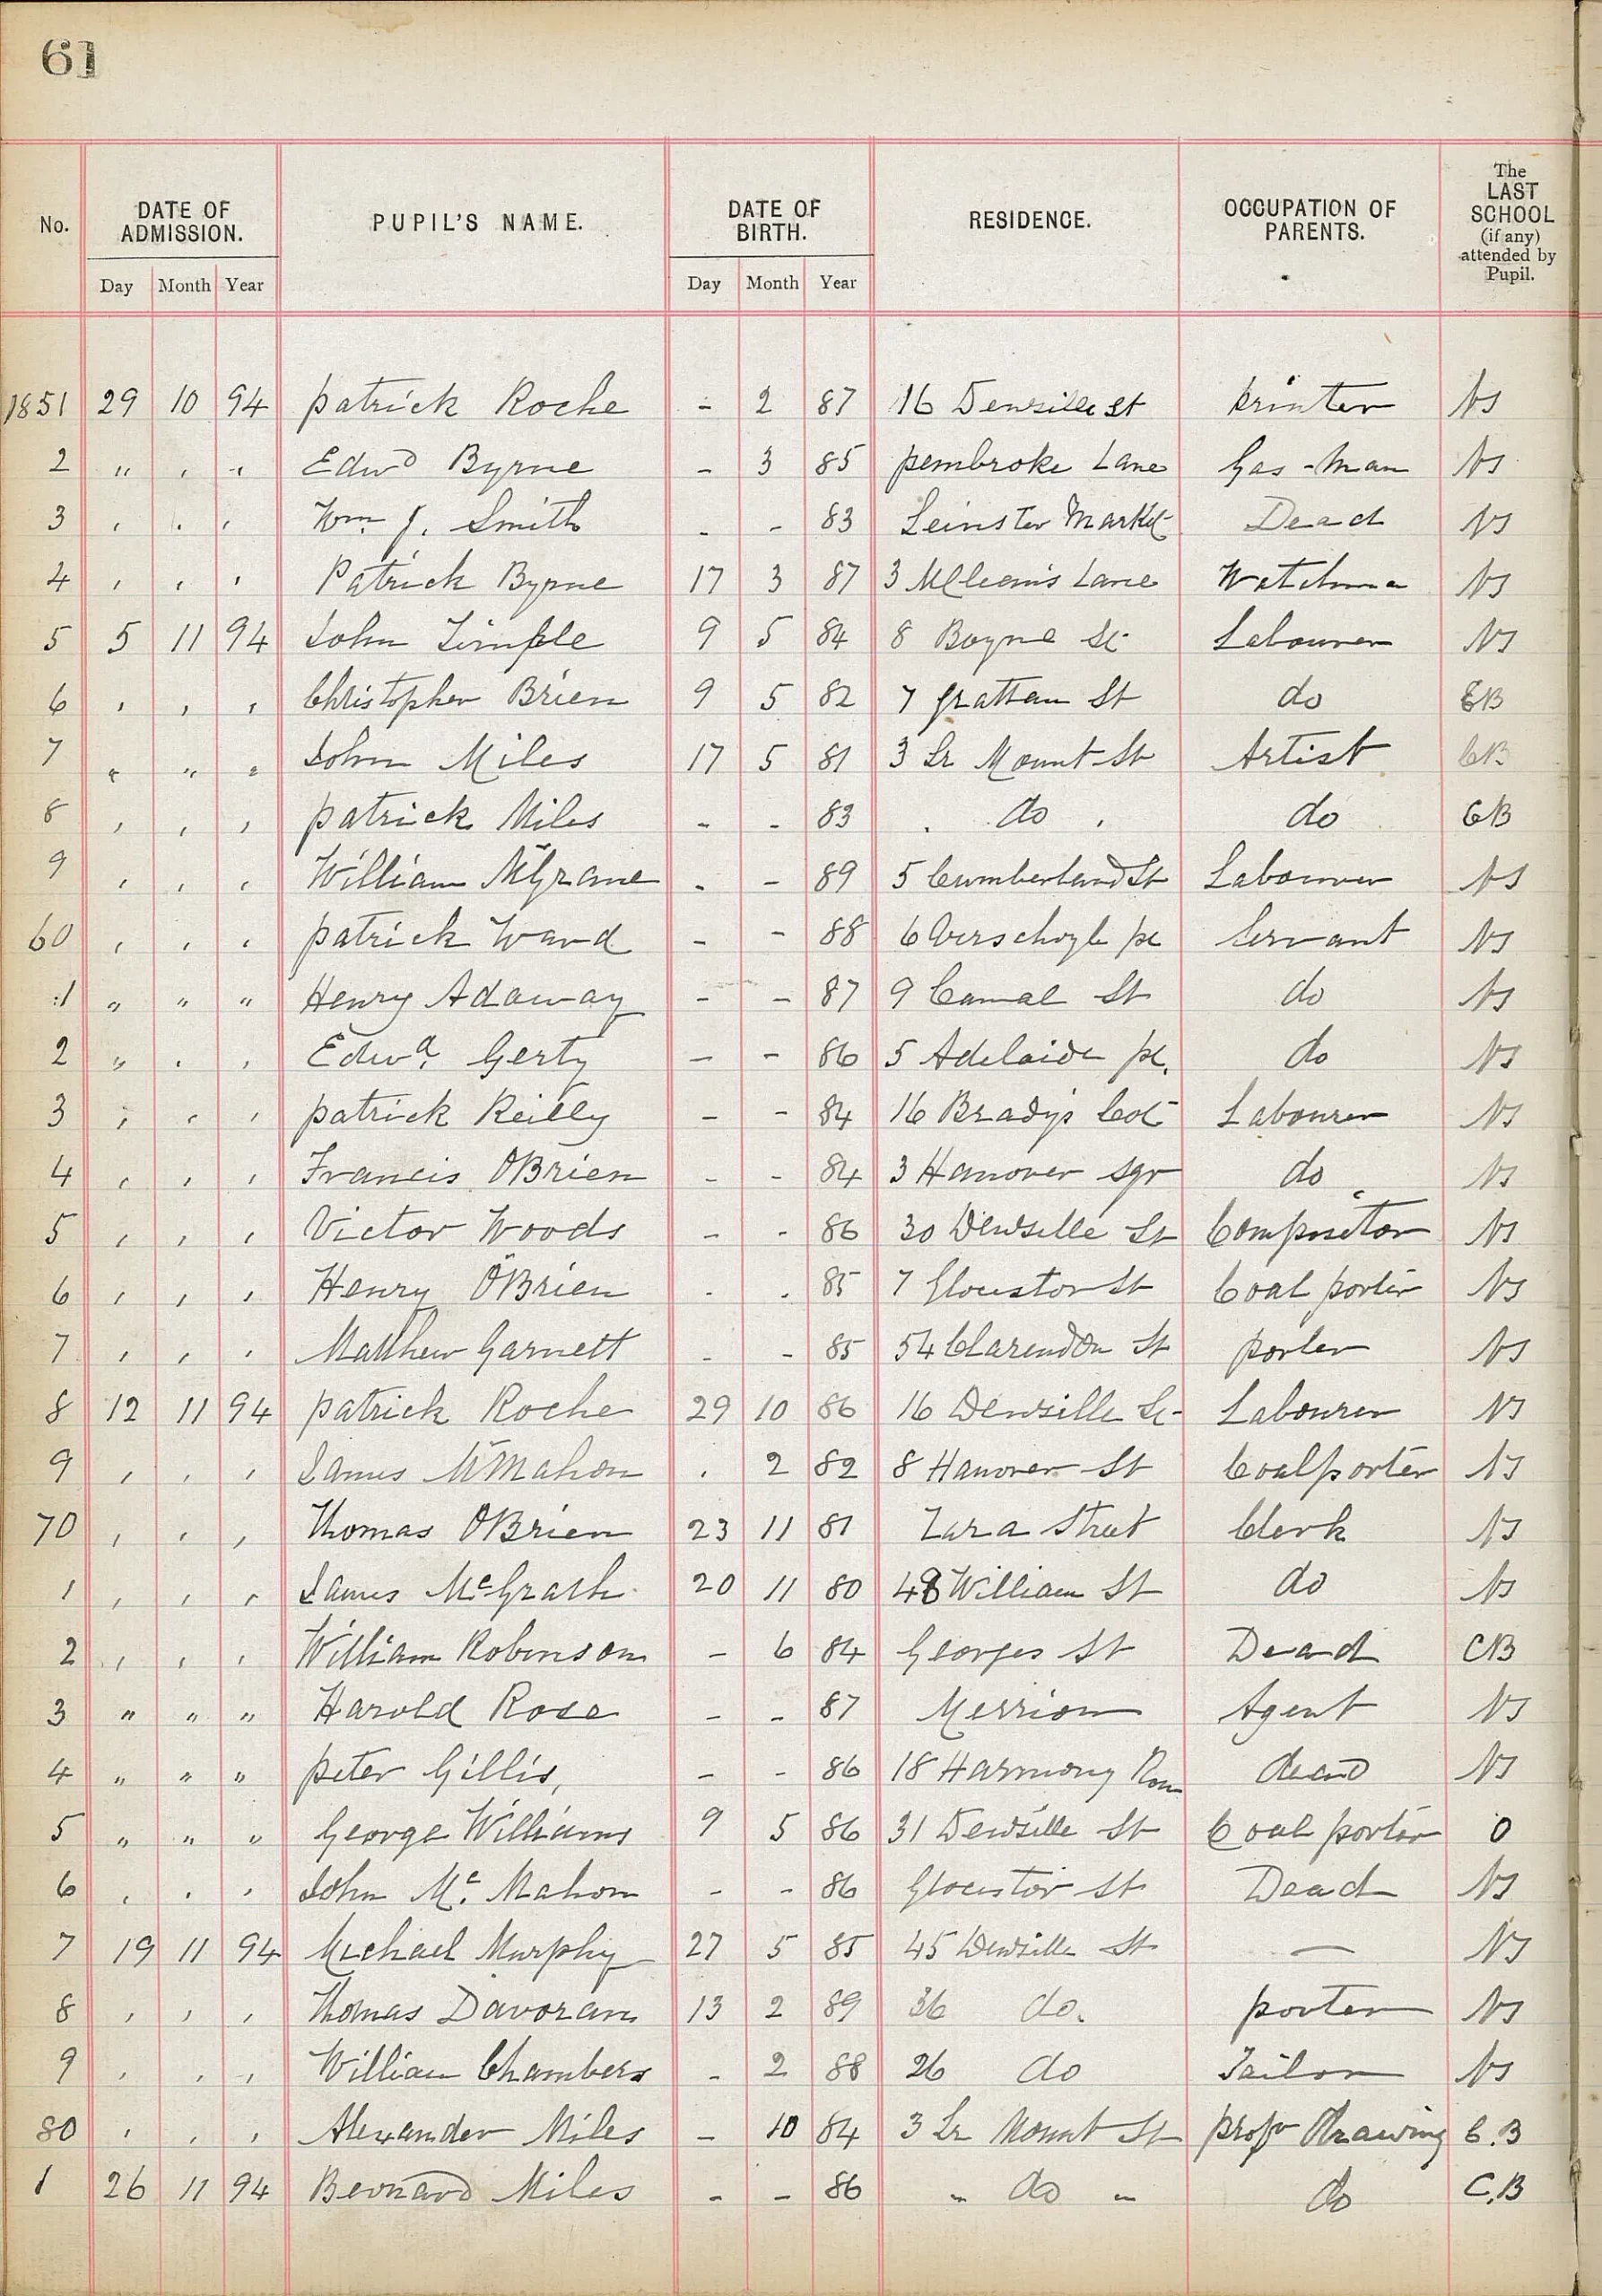 61
No. DATE OF ADMISSION. PUPIL'S NAME. DATE OF BIRTH. RESIDENCE. OCCUPATION OF PARENTS. The LAST SCHOOL (if any) attended by Pupil.
Day Month Year Day Month Year
1851 29 10 94 Patrick Roche - 2 87 16 Denzille St Printer NS
2 " , , Edwd Byrne - 3 85 Pembroke Lane Gas-Man NS
3 , , , Wm. J. Smith - - 83 Leinster Markt Dead NS
4 , , , Patrick Byrne 17 3 87 3 Lane NS
5 5 11 94 John Timple 9 5 84 8 Boyne St Labourer NS
6 , , , Christopher Brien 9 5 82 7 Grattan St do CB
7 " " " John Miles 17 5 81 3 Lr Mount St Artist CB
8 , , , Patrick Miles - - 83 , do , do CB
9 , , , William McGrane - - 89 5 Cumberland St Labourer NS
60 , , , Patrick Ward - - 88 6 Verschoyle pl Servant NS
1 " " " Henry Adaway - - 87 9 Canal St do NS
2 " , , Edwd. Gerty - - 86 5 Adelaide pl. do NS
3 , , , Patrick Reilly - - 84 16 Brady's Cot Labourer NS
4 , , , Francis O'Brien - - 84 3 Hanover sqr do NS
5 , , , Victor Woods - - 86 30 Denzille St Compositor NS
6 , , , Henry O'Brien - - 85 7 Glouster St Coal porter NS
7 , , , Matthew Garnett - - 85 54 Clarendon St porter NS
8 12 11 94 Patrick Roche 29 10 86 16 Denzille St Labourer NS
9 , , , James McMahon , 2 82 8 Hanover St Coalporter NS
70 , , , Thomas O'Brien 23 11 81 Zara Street Clerk NS
1 , , , James McGrath 20 11 80 William St do NS
2 , , , William Robinson - 6 84 Georges St Dead CB
3 " " " Harold Rose - - 87 Merrion Agent NS
4 " " " Peter Gillis, - - 86 18 Harmony Row dead NS
5 " " " George Williams 9 5 86 31 Denzille St Coal porter O
6 , , , John Mc. Mahon - - 86 Glouster St Dead NS
7 19 11 94 Michael Murphy 27 5 85 45 Denzille St — NS
8 , , , Thomas Davoran 13 2 89 36 do. porter NS
9 , , , William Chambers - 2 88 26 do Tailor NS
80 , , , Alexander Miles - 10 84 3 Lr Mount St profr Drawing C.B
1 26 11 94 Bernard Miles - - 86 " do " do C.B